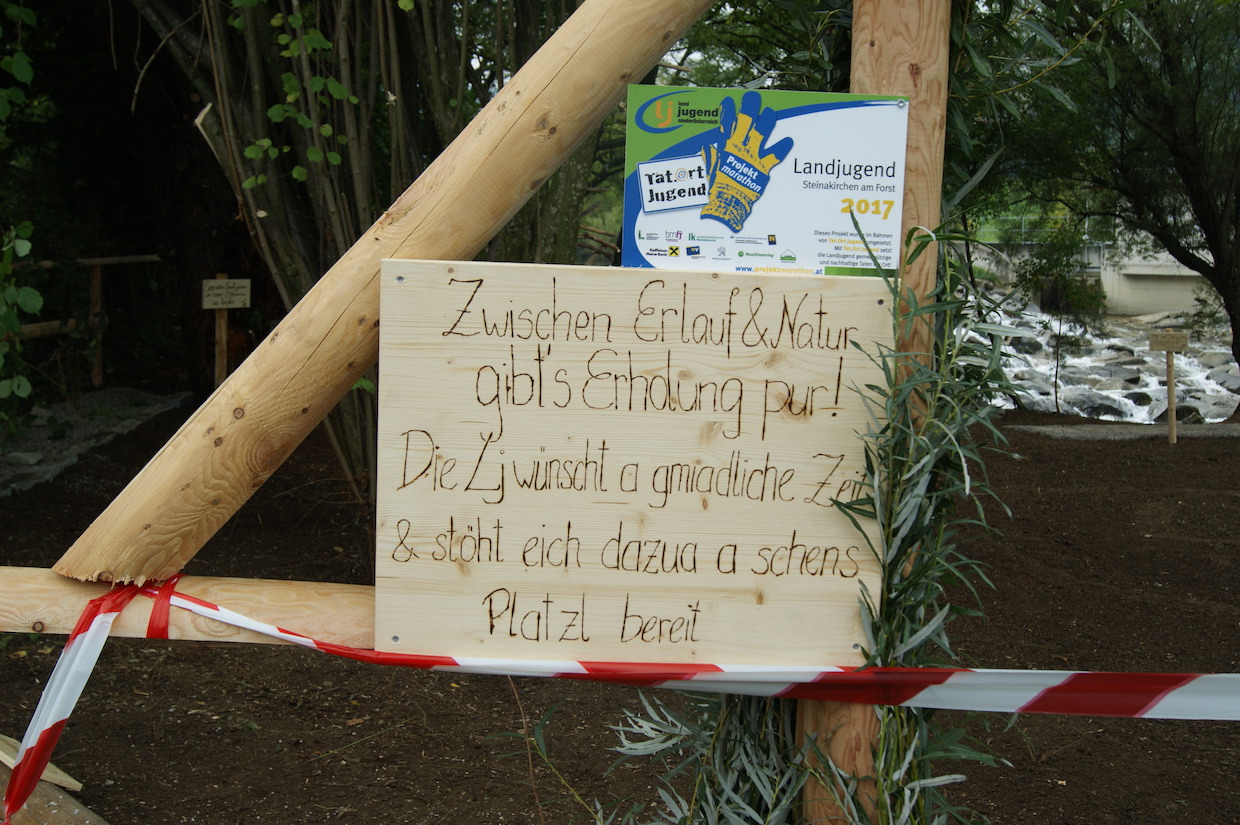 land
jugend
niederösterreich
Tat.Ort
Jugend
Projekt
marathon
Landjugend
Steinakirchen am Forst
2017
Dieses Projekt wurde im Rahmen
von Tat.Ort Jugend umgesetzt.
Mit Tat.Ort Jugend setzt
die Landjugend gemeinnützige
und nachhaltige Taten vor Ort!
www.projektmarathon.at
Zwischen Erlauf & Natur
gibt's Erholung pur!
Die Lj wünscht a gmiadliche Zeit
& stöht eich dazua a schens
Platzl bereit